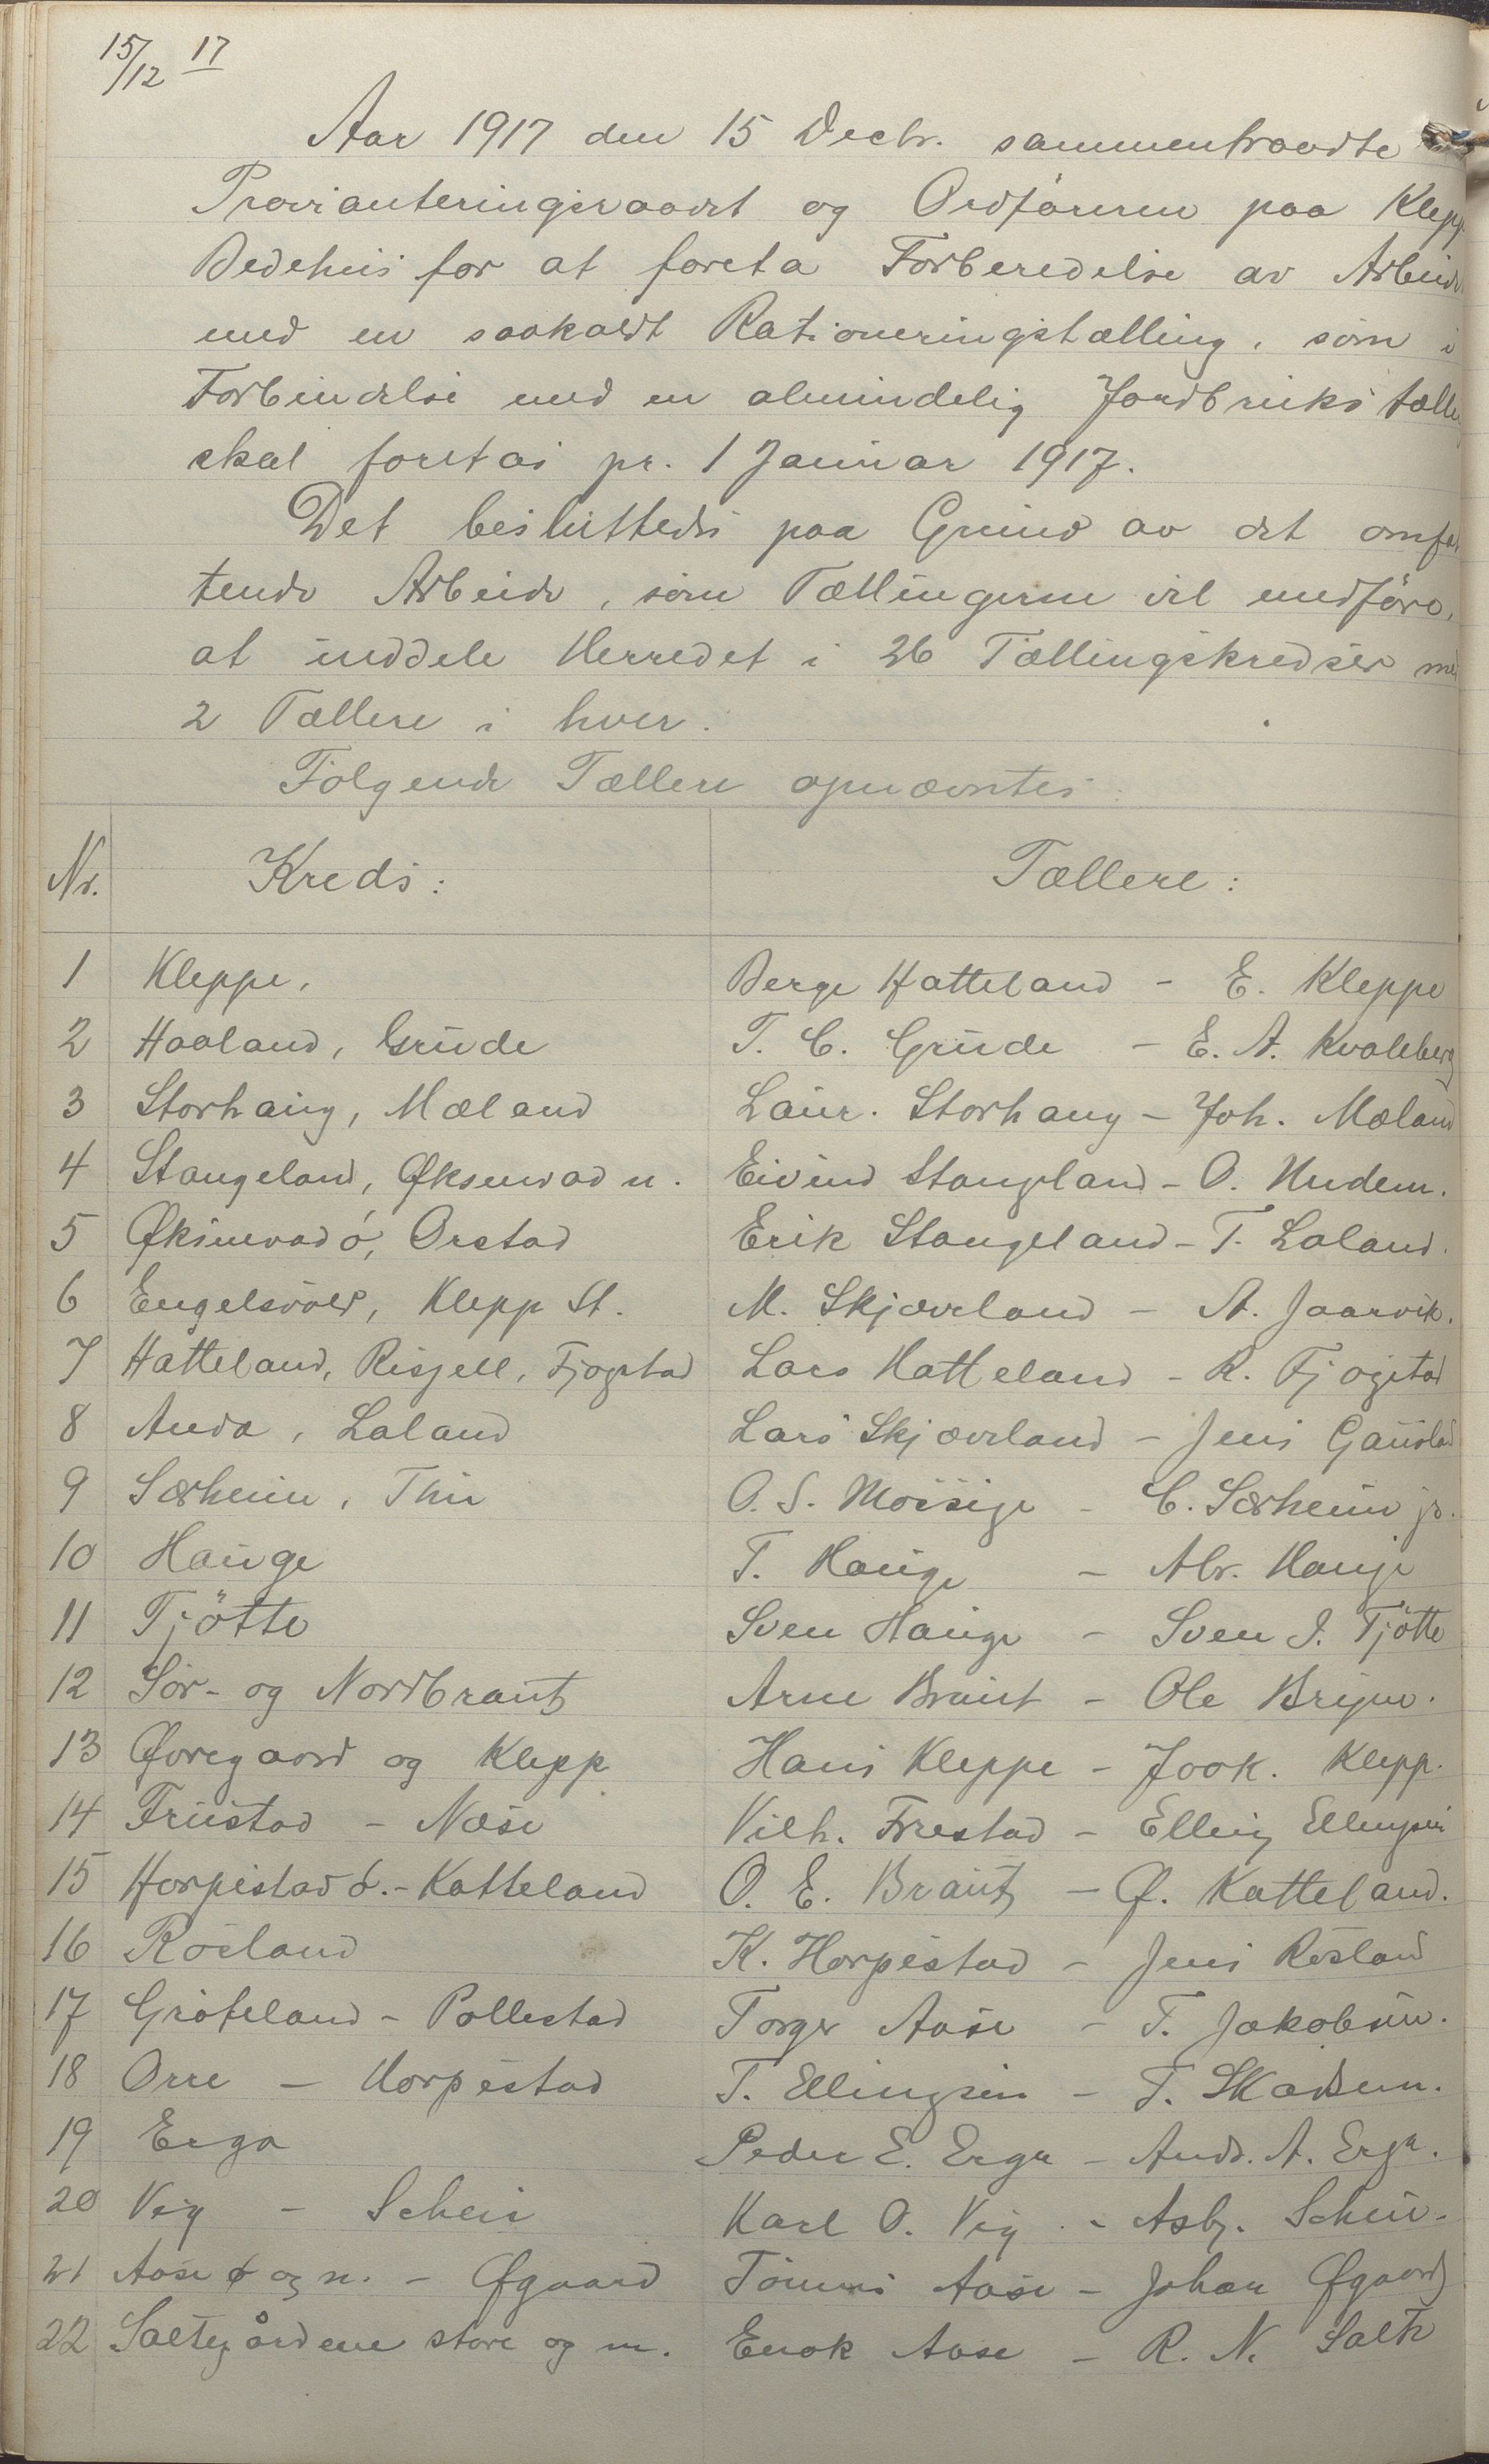 15/12 17
Aar 1917 den 15 Decbr. sammentraadte
Provianteringsraadet og Ordføreren paa Klepp
Bedehus for at foreta Forberedelse av Arbeide
med en saakaldt Rationeringstælling, som i
Forbindelse med en almindelig Jordbrukstælling
skal foretas pr. 1 Januar 1917.
Det besluttedes paa Grund av det omfat
tende Arbeide, som Tællingerne vil medføre,
at inddele Herredet i 26 Tællingskredser med
2 Tællere i hver.
Følgende Tællere opnævntes:
Nr. Kreds: Tællere:
1 Kleppe, Berge Hatteland - E. Kleppe
2 Haaland, Grude T. C. Grude - E. A. Kvaleberg
3 Storhaug, Mæland Laur. Storhaug - Joh. Mæland
4 Stangeland, Øksnevad n. Eivind Stangeland - O. Undem.
5 Øksnevad ø, Orstad Erik Stangeland - T. Laland.
6 Engelsvold, Klepp St. M. Skjæveland - A. Jaarvik.
7 Hatteland, Risjell, Fjogstad Lars Hatteland - R. Fjogstad
8 Anda, Laland Lars Skjæveland - Jens Gausland
9 Særheim, Thu O. S. Mossige - C. Særheim jr.
10 Hauge T. Hauge - Abr. Hauge
11 Tjøtte Sven Hauge - Sven I. Tjøtte
12 Sør- og Nordbraut Arne Braut - Ole Bryne.
13 Øvregaard og Klepp Hans Kleppe - Joak. Klepp.
14 Friestad - Næse Vilh. Frestad - Elling Ellingsen
15 Horpestad ø. - Katteland O. E. Braut - Ø. Katteland.
16 Rosland K. Horpestad - Jens Rosland
17 Grøteland - Pollestad Torger Aase - T. Jakobsen.
18 Orre - Horpestad T. Ellingsen - T. Skadsem.
19 Erga Peder E. Erga - Andr. A. Erga.
20 Vig - Scheie Karl O. Vig - Asbj. Scheie.
21 Aase ø og n. - Øgaard Tønnes Aase - Johan Øgaard
22 Saltegårdene store og m. Enok Aase - R. N. Salte